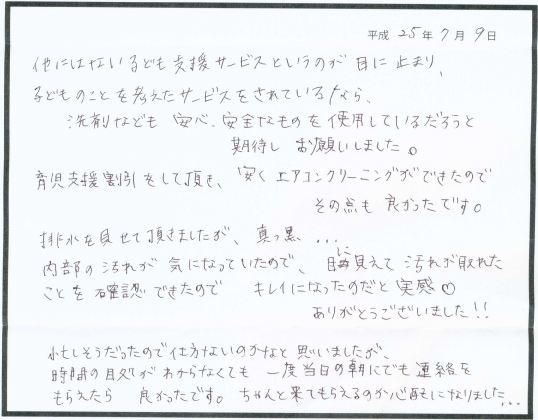 平成 25年 7月 9日
他にはない子ども支援サービスというのが目に止まり、
子どものことを考えたサービスをされているなら、
洗剤なども 安心、安全なものを使用しているだろうと
期待し お願いしました。
育児支援割引をして頂き、安くエアコンクリーニングができたので
その点も 良かったです。
排水を見せて頂きましたが、真っ黒...
内部の汚れが 気になっていたので、目に見えて 汚れが取れた
ことを確認できたので キレイになったのだと 実感♡
ありがとうございました!!
忙しそうだったので仕方ないのかなと思いましたが、
時間の目処がわからなくても 一度当日の朝にでも 連絡を
もらえたら 良かったです。ちゃんと来てもらえるのか心配になりました...